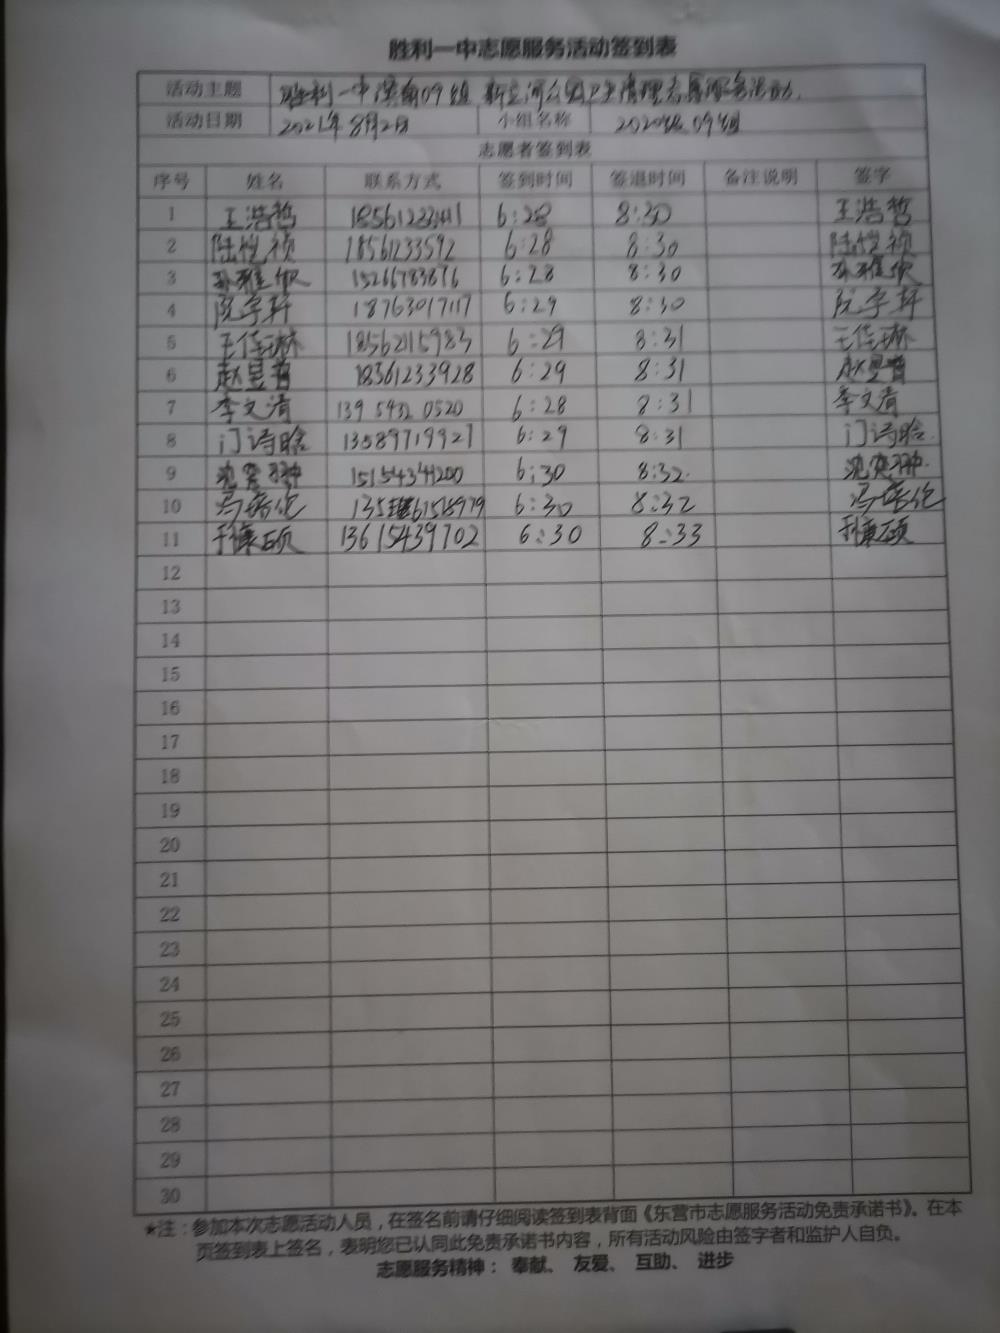 胜利一中志愿服务活动签到表
活动主题 胜利一中 09组 新立河公园卫生清理志愿服务活动.
活动日期 2021年8月2日 小组名称 2020级09组
志愿者签到表
序号 姓名 联系方式 签到时间 签退时间 备注说明 签字
1 王浩哲 6:28 8:30 王浩哲
2 陆恺祯 18561233592 6:28 8:30 陆恺祯
3 15266783876 6:28 8:30
4 阮宇轩 18763017117 6:29 8:30 阮宇轩
5 王佳琳 18562115983 6:29 8:31 王佳琳
6 赵昱普 18561233928 6:29 8:31 赵昱普
7 李文清 139 5432 0520 6:28 8:31 李文清
8 门诗晗 13589719927 6:29 8:31 门诗晗.
9 15154341200 6:30 8:32.
10 6:30 8:32
11 13615439702 6:30 8:33
12
13
14
15
16
17
18
19
20
21
22
23
24
25
26
27
28
29
30
★注：参加本次志愿活动人员，在签名前请仔细阅读签到表背面《东营市志愿服务活动免责承诺书》。在本
页签到表上签名，表明您已认同此免责承诺书内容，所有活动风险由签字者和监护人自负。
志愿服务精神： 奉献、 友爱、 互助、 进步